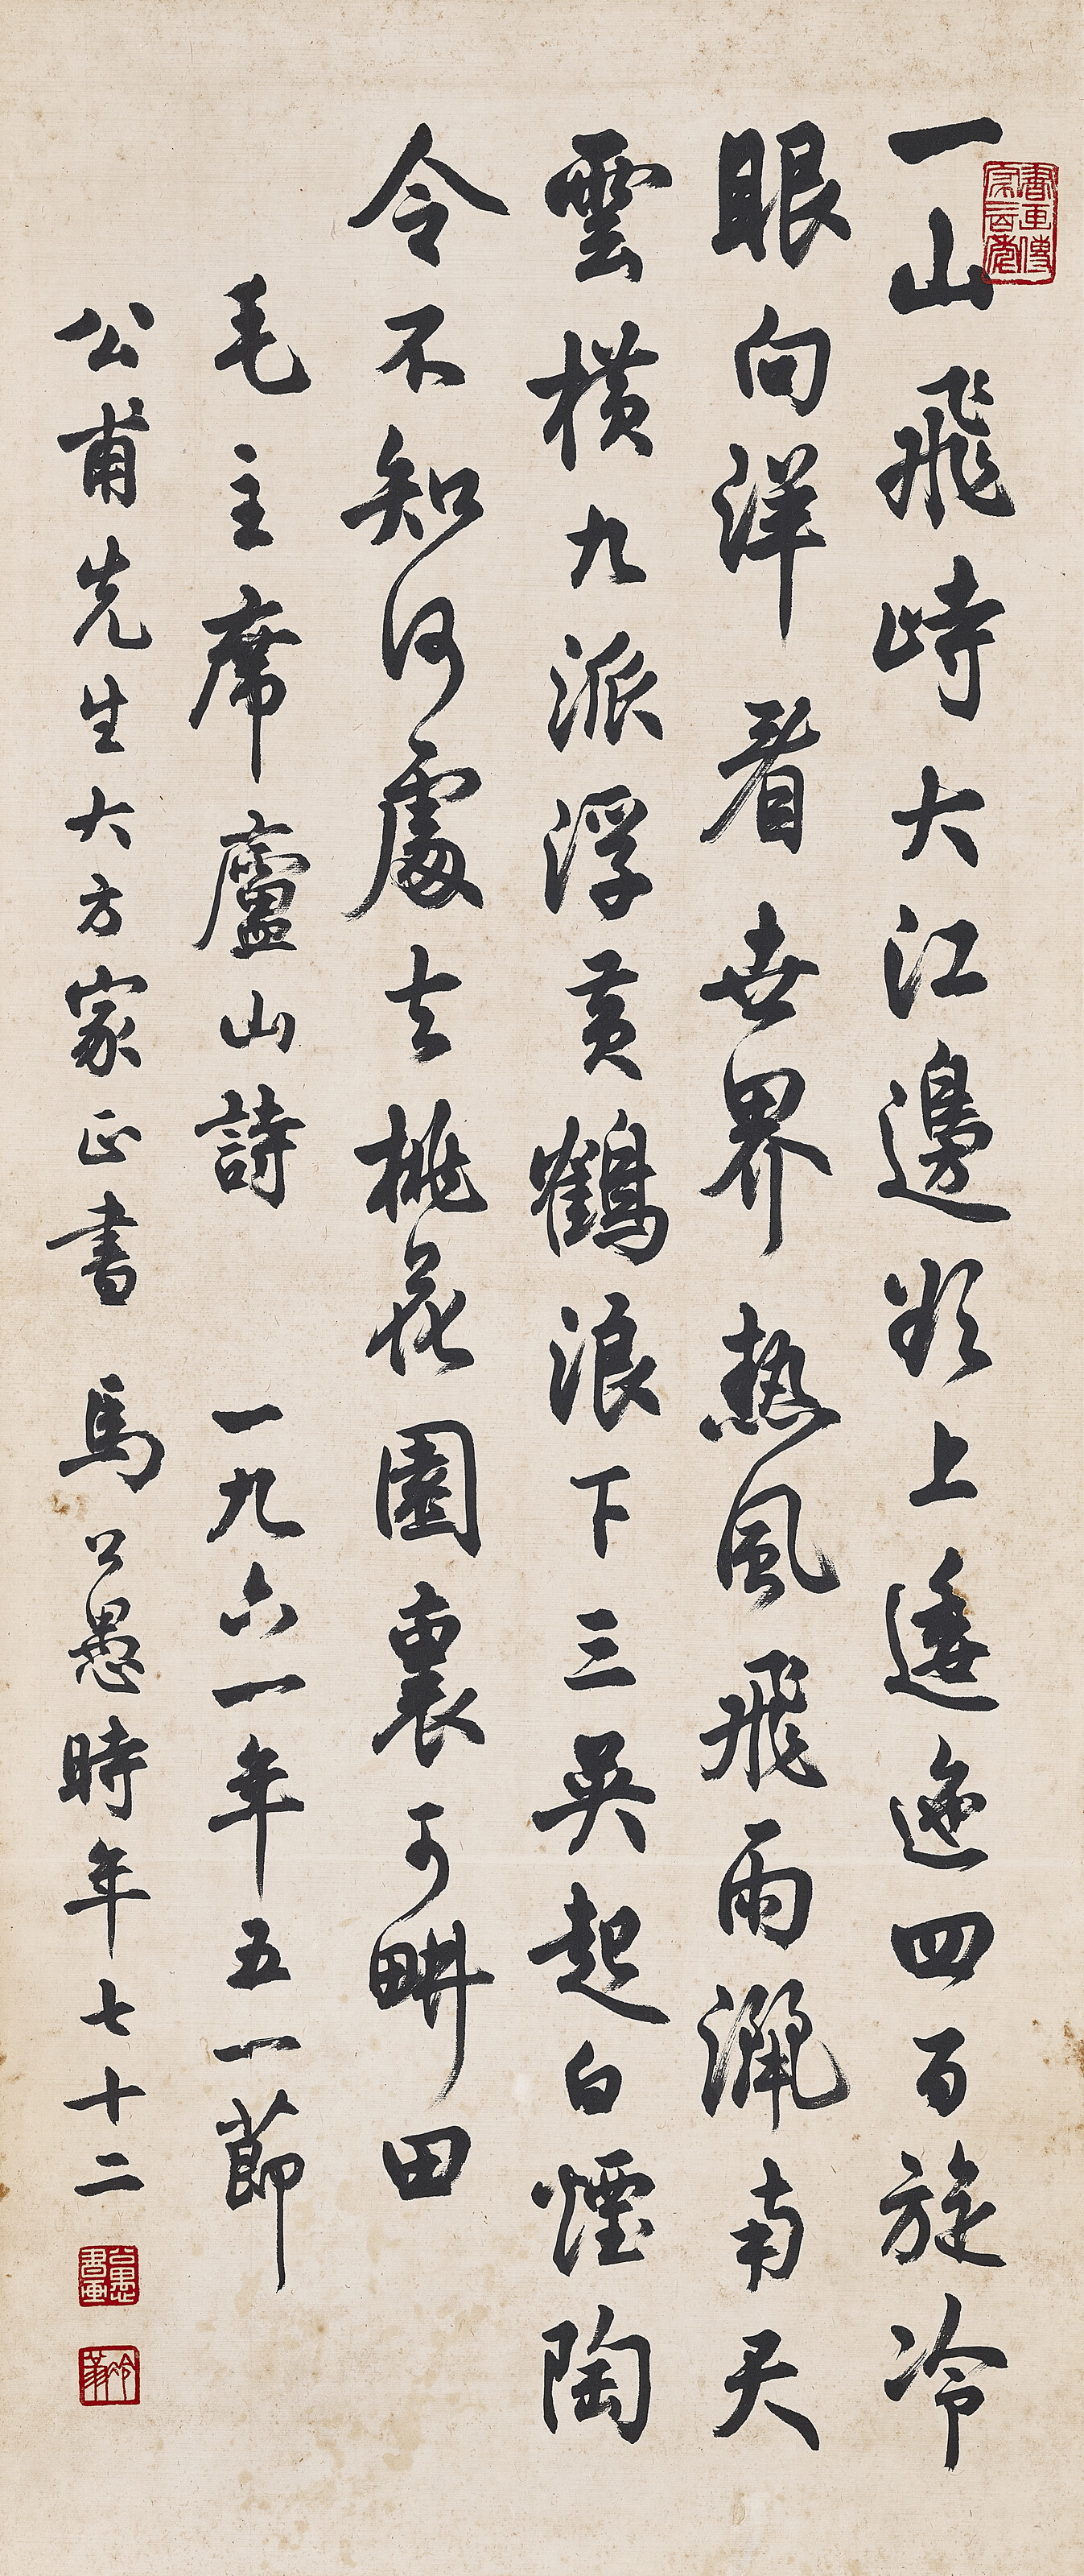 書畫傳家三百年
一山飛峙大江邊欲上逶迤四百旋冷
眼向洋看世界熱風飛雨灑南天
雲橫九派浮黃鶴浪下三吳起白煙陶
令不知何處去桃花園裏可畊田
毛主席廬山詩 一九六一年五一節
公甫先生大方家正書 馬公愚時年七十二
公愚書畫